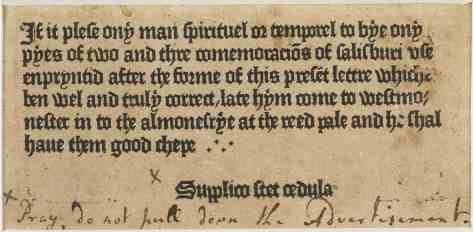 If it plese ony man spirituel or temporel to bye ony
pyes of two and thre comemoraciõs of salisburi vse
enpryntid after the forme of this presẽt lettre whiche
ben wel and truly correct, late hym come to westmo-
nester in to the almonesrye at the reed pale and he shal
haue them good chepe .·.·
Supplico stet cedula
Pray, do not pull down the Advertisement.